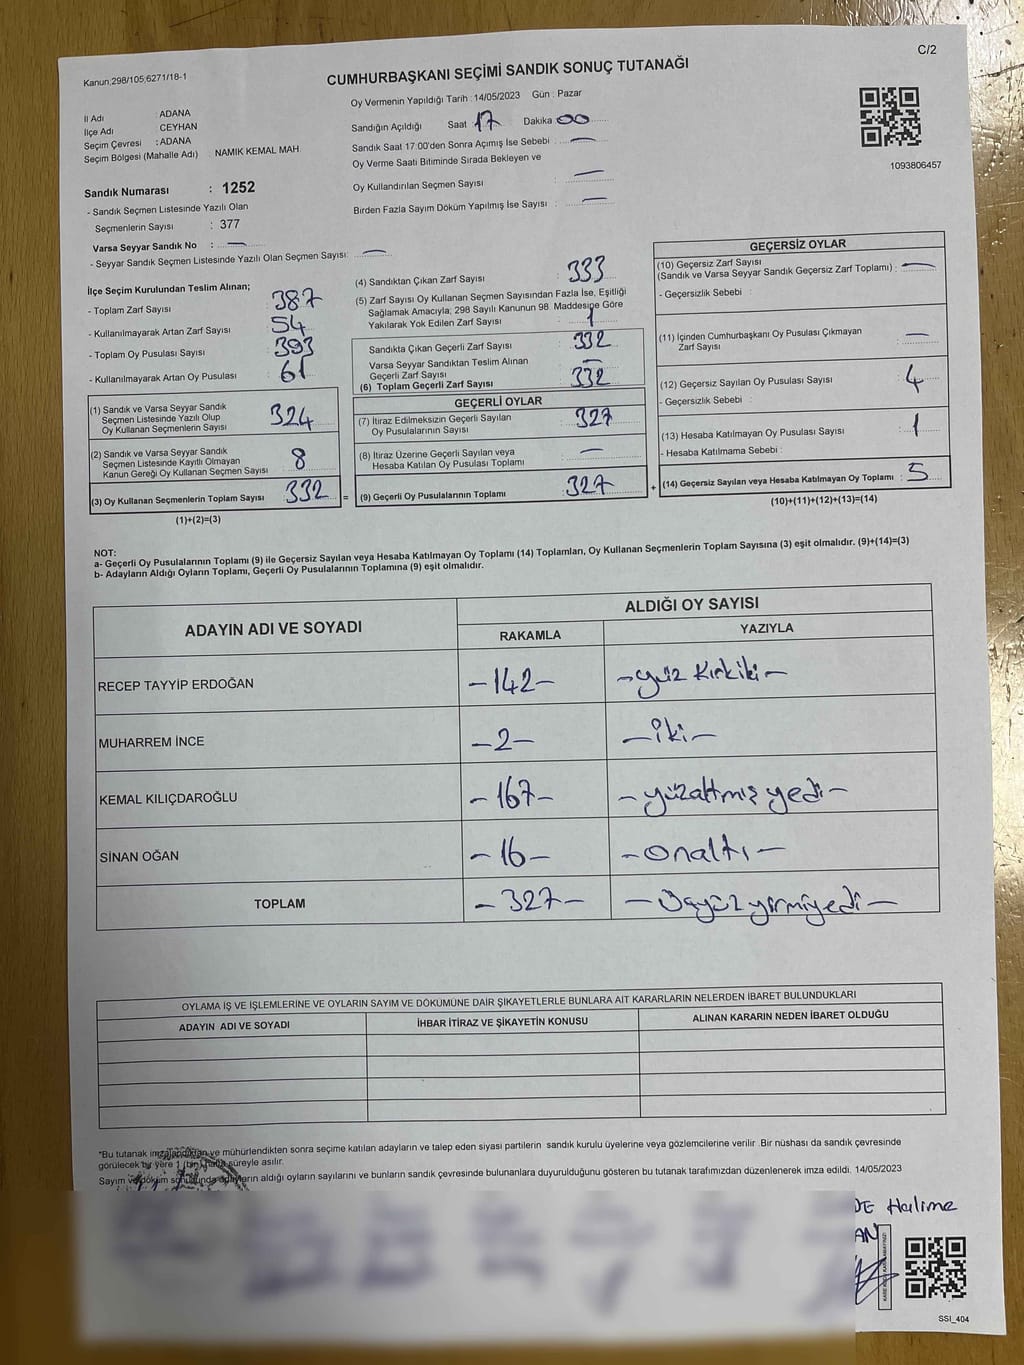 C/2
Kanun:298/105;6271/18-1
CUMHURBAŞKANI SEÇİMİ SANDIK SONUÇ TUTANAĞI
İl Adı : ADANA
İlçe Adı CEYHAN
Seçim Çevresi : ADANA
Seçim Bölgesi (Mahalle Adı) NAMIK KEMAL MAH.
Sandık Numarası : 1252
- Sandık Seçmen Listesinde Yazılı Olan
Seçmenlerin Sayısı : 377
Varsa Seyyar Sandık No : —
- Seyyar Sandık Seçmen Listesinde Yazılı Olan Seçmen Sayısı: —
Oy Vermenin Yapıldığı Tarih : 14/05/2023 Gün : Pazar
Sandığın Açıldığı Saat 17 Dakika 00
Sandık Saat 17:00'den Sonra Açımış İse Sebebi : —
Oy Verme Saati Bitiminde Sırada Bekleyen ve
Oy Kullandırılan Seçmen Sayısı : —
Birden Fazla Sayım Döküm Yapılmış İse Sayısı : —
1093806457
İlçe Seçim Kurulundan Teslim Alınan;
- Toplam Zarf Sayısı : 387
- Kullanılmayarak Artan Zarf Sayısı : 54
- Toplam Oy Pusulası Sayısı : 393
- Kullanılmayarak Artan Oy Pusulası : 61
(1) Sandık ve Varsa Seyyar Sandık
Seçmen Listesinde Yazılı Olup
Oy Kullanan Seçmenlerin Sayısı : 324
(2) Sandık ve Varsa Seyyar Sandık
Seçmen Listesinde Kayıtlı Olmayan
Kanun Gereği Oy Kullanan Seçmen Sayısı : 8
(3) Oy Kullanan Seçmenlerin Toplam Sayısı : 332 =
(1)+(2)=(3)
(4) Sandıktan Çıkan Zarf Sayısı : 333
(5) Zarf Sayısı Oy Kullanan Seçmen Sayısından Fazla İse, Eşitliği
Sağlamak Amacıyla; 298 Sayılı Kanunun 98. Maddesine Göre
Yakılarak Yok Edilen Zarf Sayısı : 1
Sandıkta Çıkan Geçerli Zarf Sayısı : 332
Varsa Seyyar Sandıktan Teslim Alınan
Geçerli Zarf Sayısı : —
(6) Toplam Geçerli Zarf Sayısı : 332
GEÇERLİ OYLAR
(7) İtiraz Edilmeksizin Geçerli Sayılan
Oy Pusulalarının Sayısı : 327
(8) İtiraz Üzerine Geçerli Sayılan veya
Hesaba Katılan Oy Pusulası Toplamı : —
(9) Geçerli Oy Pusulalarının Toplamı : 327 +
GEÇERSİZ OYLAR
(10) Geçersiz Zarf Sayısı
(Sandık ve Varsa Seyyar Sandık Geçersiz Zarf Toplamı) : —
- Geçersizlik Sebebi :
(11) İçinden Cumhurbaşkanı Oy Pusulası Çıkmayan
Zarf Sayısı : —
(12) Geçersiz Sayılan Oy Pusulası Sayısı : 4
- Geçersizlik Sebebi :
(13) Hesaba Katılmayan Oy Pusulası Sayısı : 1
- Hesaba Katılmama Sebebi :
(14) Geçersiz Sayılan veya Hesaba Katılmayan Oy Toplamı : 5
(10)+(11)+(12)+(13)=(14)
NOT:
a- Geçerli Oy Pusulalarının Toplamı (9) ile Geçersiz Sayılan veya Hesaba Katılmayan Oy Toplamı (14) Toplamları, Oy Kullanan Seçmenlerin Toplam Sayısına (3) eşit olmalıdır. (9)+(14)=(3)
b- Adayların Aldığı Oyların Toplamı, Geçerli Oy Pusulalarının Toplamına (9) eşit olmalıdır.
ADAYIN ADI VE SOYADI ALDIĞI OY SAYISI
RAKAMLA YAZIYLA
RECEP TAYYİP ERDOĞAN -142- -yüz kırkiki-
MUHARREM İNCE -2- -iki-
KEMAL KILIÇDAROĞLU -167- -yüzaltmış yedi-
SİNAN OĞAN -16- -onaltı-
TOPLAM -327- -Üçyüz yirmiyedi-
OYLAMA İŞ VE İŞLEMLERİNE VE OYLARIN SAYIM VE DÖKÜMÜNE DAİR ŞİKAYETLERLE BUNLARA AİT KARARLARIN NELERDEN İBARET BULUNDUKLARI
ADAYIN ADI VE SOYADI İHBAR İTİRAZ VE ŞİKAYETİN KONUSU ALINAN KARARIN NEDEN İBARET OLDUĞU
*Bu tutanak imzalandıktan ve mühürlendikten sonra seçime katılan adayların ve talep eden siyasi partilerin sandık kurulu üyelerine veya gözlemcilerine verilir. Bir nüshası da sandık çevresinde
görülecek bir yere 1 (bir) hafta süreyle asılır.
Sayım ve döküm sonucunda adayların aldığı oyların sayılarını ve bunların sandık çevresinde bulunanlara duyurulduğunu gösteren bu tutanak tarafımızdan düzenlenerek imza edildi. 14/05/2023
Halime
AN
SSI_404